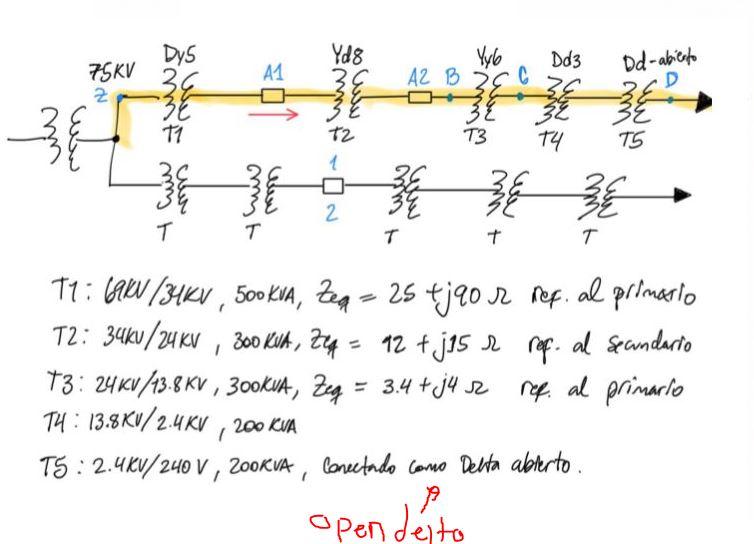 Dy5 Yd8 Yy6 Dd3 Dd-abierto
75KV A1 A2 B C D
Z
T1 T2 T3 T4 T5
1
2
T T T T T
T1: 69KV/34KV, 500KVA, Zeq = 25 + j90 Ω ref. al primario
T2: 34KV/24KV, 300KVA, Zeq = 12 + j15 Ω ref. al secundario
T3: 24KV/13.8KV, 300KVA, Zeq = 3.4 + j4 Ω ref. al primario
T4: 13.8KV/2.4KV, 200KVA
T5: 2.4KV/240V, 200KVA, Conectado como Delta abierto.